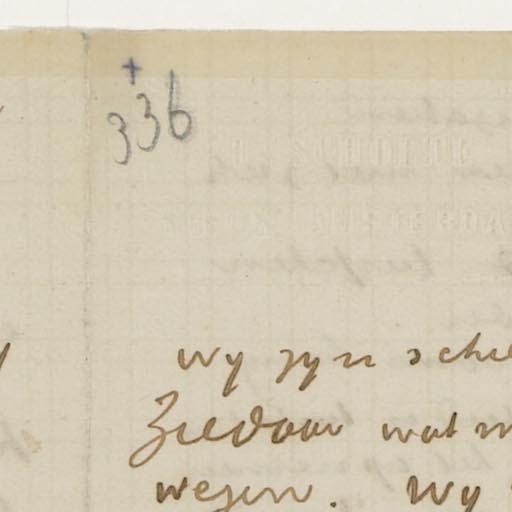 +
336
Wy zyn sche
Ziedaar wat m
wezen. Wy